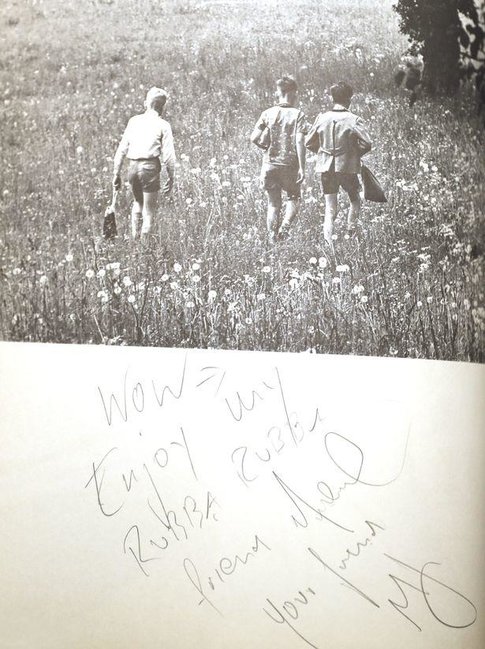 Wow =
Enjoy my
RUBBA RUBBA
friend
Your friend
MJ